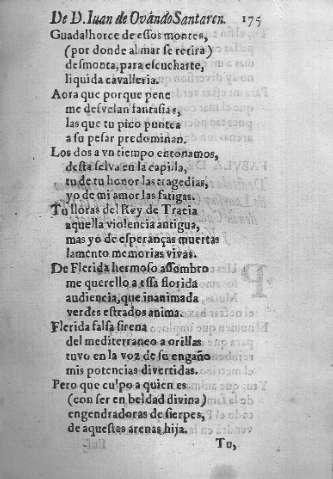 De D. Iuan de Ovándo Santaren. 175
Guadalhorce de essos montes,
(por donde al mar se retira)
desmonta, para escucharte,
liquida cavalleria.
Aora que porque pene
me desvelan fantasias,
las que tu pico puntea
a su pesar predominan.
Los dos a vn tiempo entonamos,
desta selva en la capilla,
tu de tu honor las tragedias,
yo de mi amor las fatigas.
Tu lloras del Rey de Tracia
aquella violencia antigua,
mas yo de esperanças muertas
lamento memorias vivas.
De Flerida hermoso assombro
me querello a essa florida
audiencia, que inanimada
verdes estrados anima.
Flerida falsa sirena
del mediterraneo a orillas
tuvo en la voz de su engaño
mis potencias divertidas.
Pero que culpo a quien es
(con ser en beldad divina)
engendradoras de sierpes,
de aquestas arenas hija.
Tu,